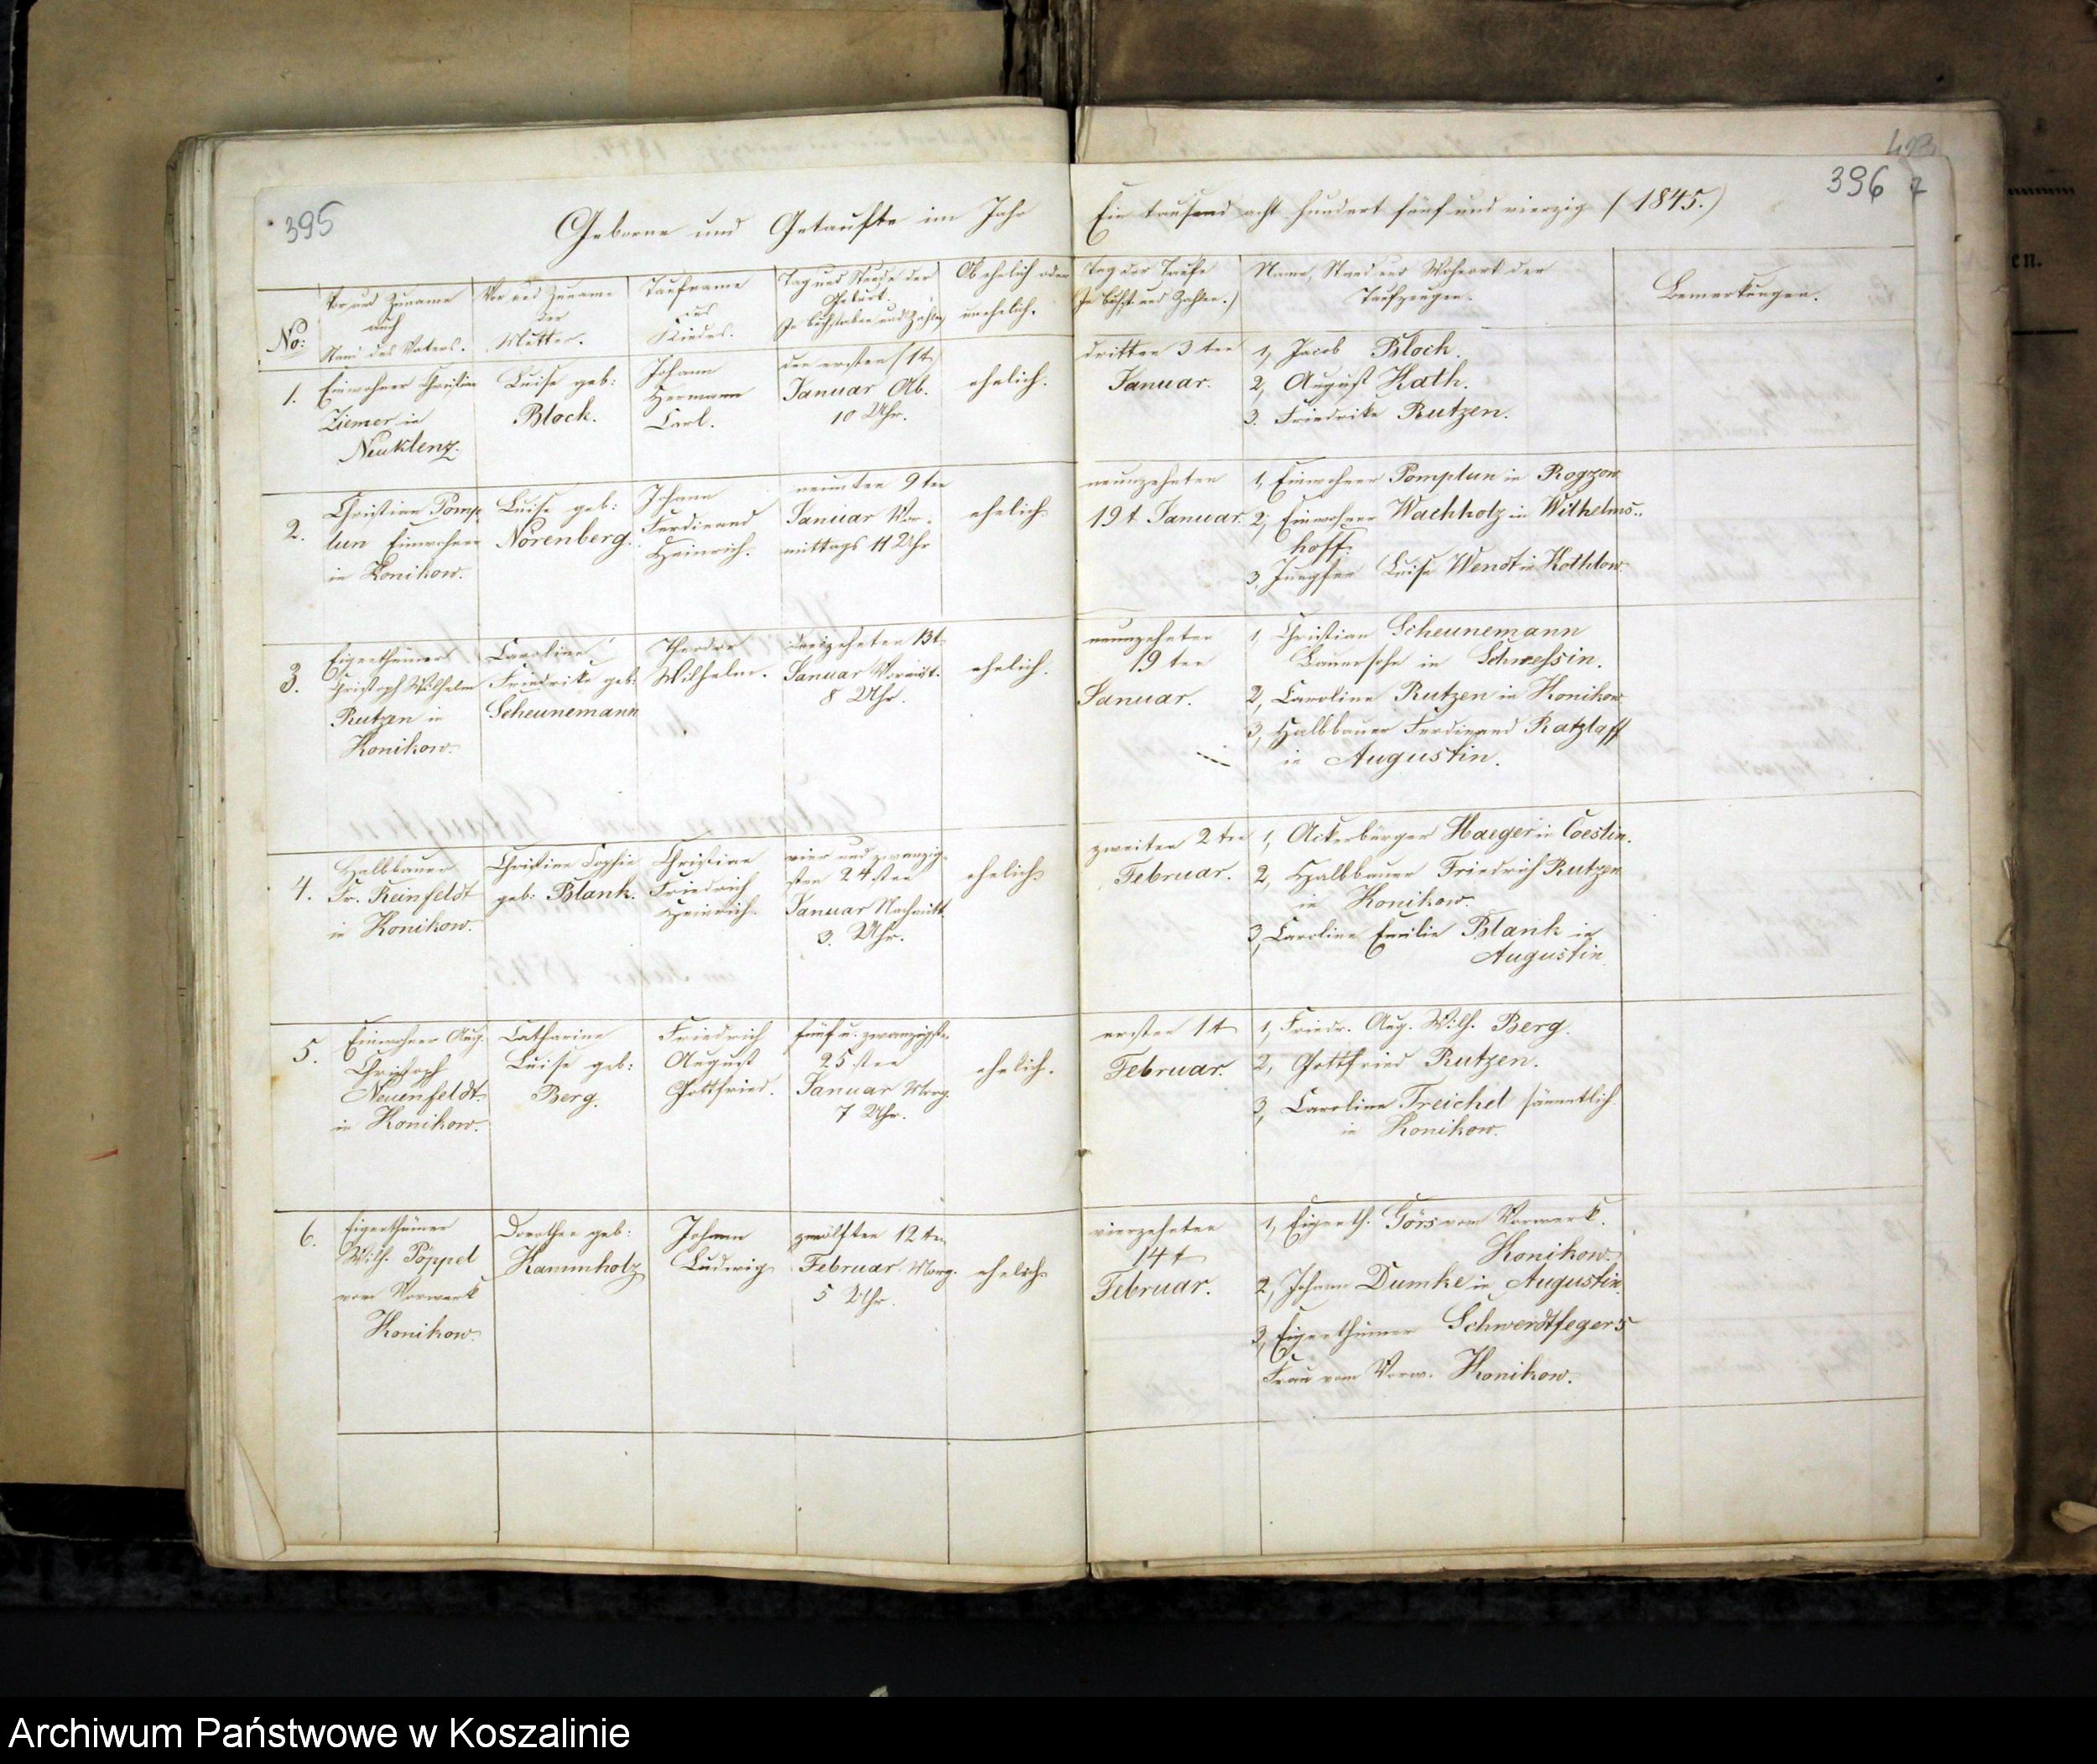 395
396
Geborne und Getaufte im Jahr
Ein tausend acht hundert fünf und vierzig (1845.)
No:
Vor und Zuname
auch
Stand des Vaters.
Vor und Zuname
der
Mutter.
Taufname
des
Kindes.
Tag und Stunde der
Geburt.
In Buchstaben und Zahlen
Ob ehelich oder
unehelich.
Tag der Taufe
(In Buchst. und Zahlen.)
Name, Stand und Wohnort der
Taufzeugen.
Bemerkungen.
1.
Einwohner Christian
Ziemer in
Neuklenz.
Luise geb:
Block.
Johann
Hermann
Carl.
den ersten (1t)
Januar Ab.
10 Uhr.
ehelich.
dritten 3 ten
Januar.
1, Jacob Block.
2, August Kath.
3. Friedrike Rutzen.
2.
Christian Pomp
lun Einwohner
in Konikow.
Luise geb:
Norenberg.
Johann
Ferdinand
Heinrich.
neunten 9 ten
Januar Vor-
mittags 11 Uhr
ehelich.
neunzehnten
19 t Januar.
1, Einwohner Pomplun in Rogzow
2, Einwohner Wachholz in Wilhelms-
hoff.
3, Jungfer Luise Wendt in Kothlow.
3.
Eigenthümer
Christoph Wilhelm
Rutzen in
Konikow.
Caroline
Friedrike geb:
Scheunemann
Theodor
Wilhelm.
dreizehnten 13t.
Januar Vormit.
8 Uhr.
ehelich.
neunzehnten
19 ten
Januar.
1, Christian Scheunemann
Bauersohn in Schwessin.
2, Caroline Rutzen in Konikow
3, Halbbauer Ferdinand Ratzlaff
in Augustin.
4.
Halbbauer
Fr. Reinfeldt
in Konikow.
Christine Sophie
geb: Blank.
Christian
Friedrich
Heinrich.
vier und zwanzig-
sten 24 sten
Januar Nachmitt.
3. Uhr.
ehelich
zweiten 2 ten
Februar.
1, Ackerbürger Haeger in Coeslin.
2, Halbbauer Friedrich Rutzen
in Konikow.
3, Caroline Emilie Blank in
Augustin
5.
Einwohner Aug.
Christoph
Neuenfeldt
in Konikow.
Catharine
Luise geb:
Berg.
Friedrich
August
Gottfried.
fünf u. zwanzigste
25 sten
Januar Morg.
7 Uhr.
ehelich.
ersten 1t
Februar.
1, Friedr. Aug. Wilh. Berg.
2, Gottfried Rutzen.
3, Caroline Treichel sämmtlich
in Konikow.
6.
Eigenthümer
Wilh. Pöppel
vom Vorwerk
Konikow.
Dorothee geb:
Kammholz
Johann
Ludwig
zwölften 12 ten
Februar Morg.
5 Uhr.
ehelich
vierzehnten
14 t
Februar.
1, Eigenth. Görs vom Vorwerk.
Konikow.
2, Johann Dumke in Augustin
3, Eigenthümer Schwerdtfegers
Frau vom Vorw. Konikow.
en.
Archiwum Państwowe w Koszalinie